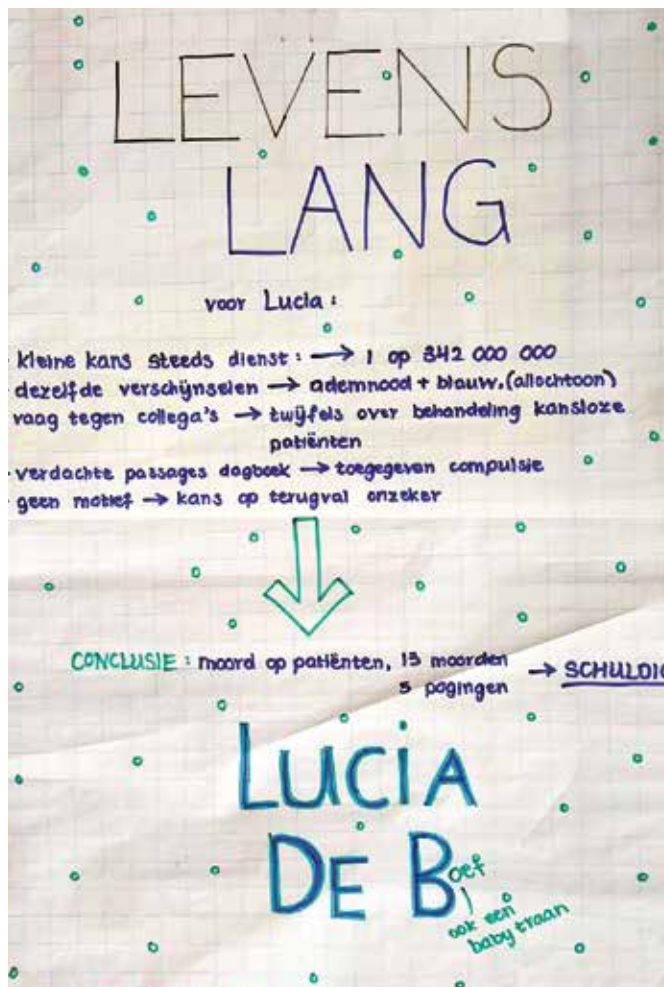 LEVENS
LANG
voor Lucia:
kleine kans steeds dienst: → 1 op 342 000 000
dezelfde verschijnselen → ademnood + blauw. (allochtoon)
vaag tegen collega's → twijfels over behandeling kansloze
patiënten
- verdachte passages dagboek → toegegeven compulsie
geen motief → kans op terugval onzeker
CONCLUSIE: moord op patiënten, 13 moorden → SCHULDIG
5 pogingen
LUCIA
DE Boef
ook een
baby traan